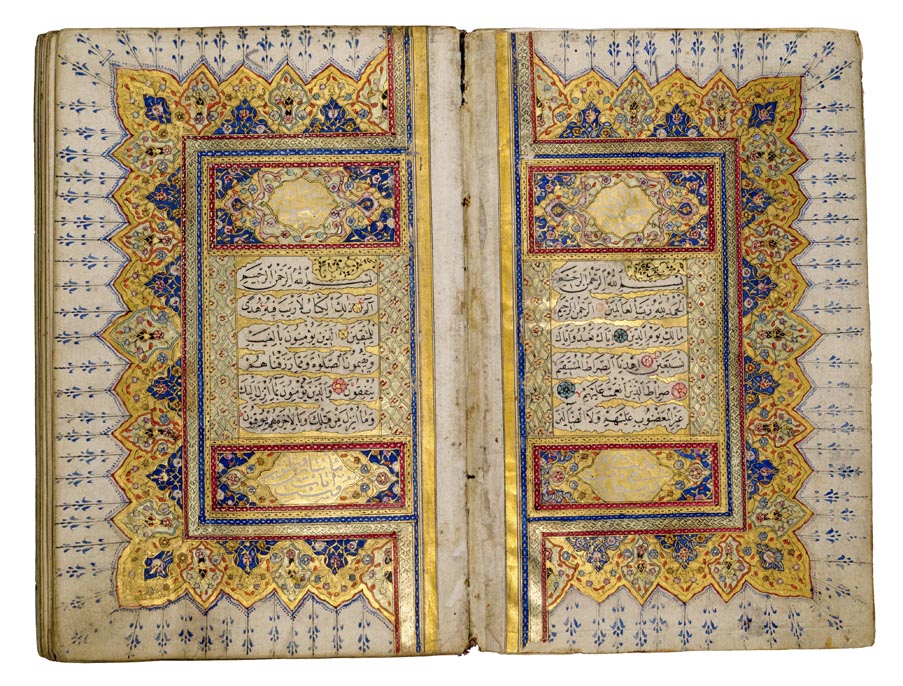 بسم الله الرحمن الرحيم
الحمد لله رب العالمين الرحمن الرحيم
مالك يوم الدين اياك نعبد واياك
نستعين اهدنا الصراط المستقيم
صراط الذين انعمت عليهم
غير المغضوب عليهم ولا الضالين
بسم الله الرحمن الرحيم
الم ذلك الكتاب لا ريب فيه هدى
للمتقين الذين يؤمنون بالغيب
ويقيمون الصلوة ومما رزقناهم
ينفقون والذين يؤمنون بما انزل اليك
وما انزل من قبلك وبالاخرة هم يوقنون